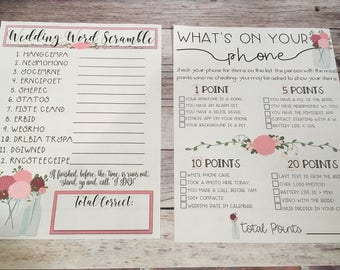 Wedding Word Scramble
1. MANGCEMPA
2. NEYMOHONO
3. JOCEMRNE
4. ERNCIPB
5. SMEPEC
6. STATOS
7. FISTE CEAND
8. ERBID
9. WEORMO
10. DRLBIA TRYPA
11. DGIWNED
12. RNCSTEECEIPE
If finished, before, the time, is runs out,
stand, up and, call, "I DO!"
Total Correct:
WHAT'S ON YOUR
phone
check your phone for items on this list. the person with the most
points wins! no checking- you may be asked to show your items
1 POINT
YOUR RINGTONE IS A SONG
YOU HAVE AN ALARM SET
YOU HAVE A SELFIE
FITNESS APP ON YOUR PHONE
YOUR BACKGROUND IS A PET
5 POINTS
YOU HAVE A PIC OF THE BRIDE
YOU HAVE INSTAGRAM
YOU HAVE THE PINTEREST APP
CONTACT STARTING WITH A W
BATTERY LIFE IS
10 POINTS
WHITE PHONE CASE
TOOK A PHOTO HERE TODAY
YOU MADE A CALL BEFORE 9AM
100+ CONTACTS
WEDDING DATE IN CALENDAR
20 POINTS
LAST TEXT IS FROM THE BRIDE
OVER 1,000 PHOTOS!
BATTERY LIFE IS
VIDEO WITH THE BRIDE!
BRIDE DRESSED IN YOUR
total Points